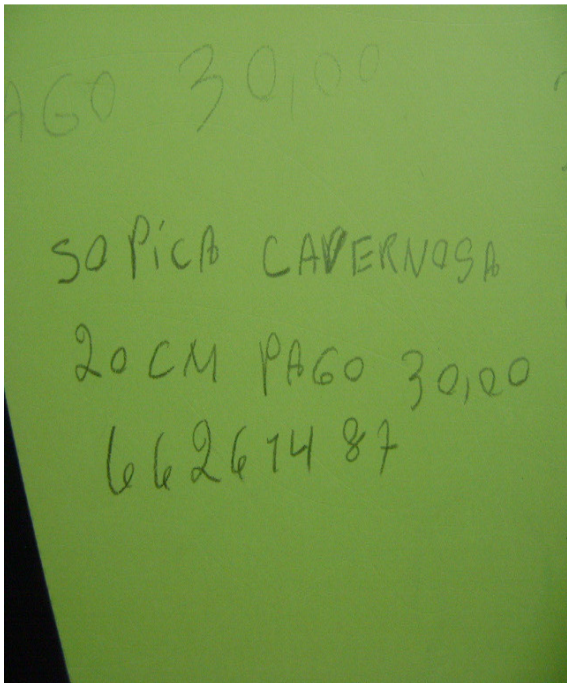 AGO 30,00
SO PíCA CAVERNOSA
20 CM PAGO 30,00
66261487